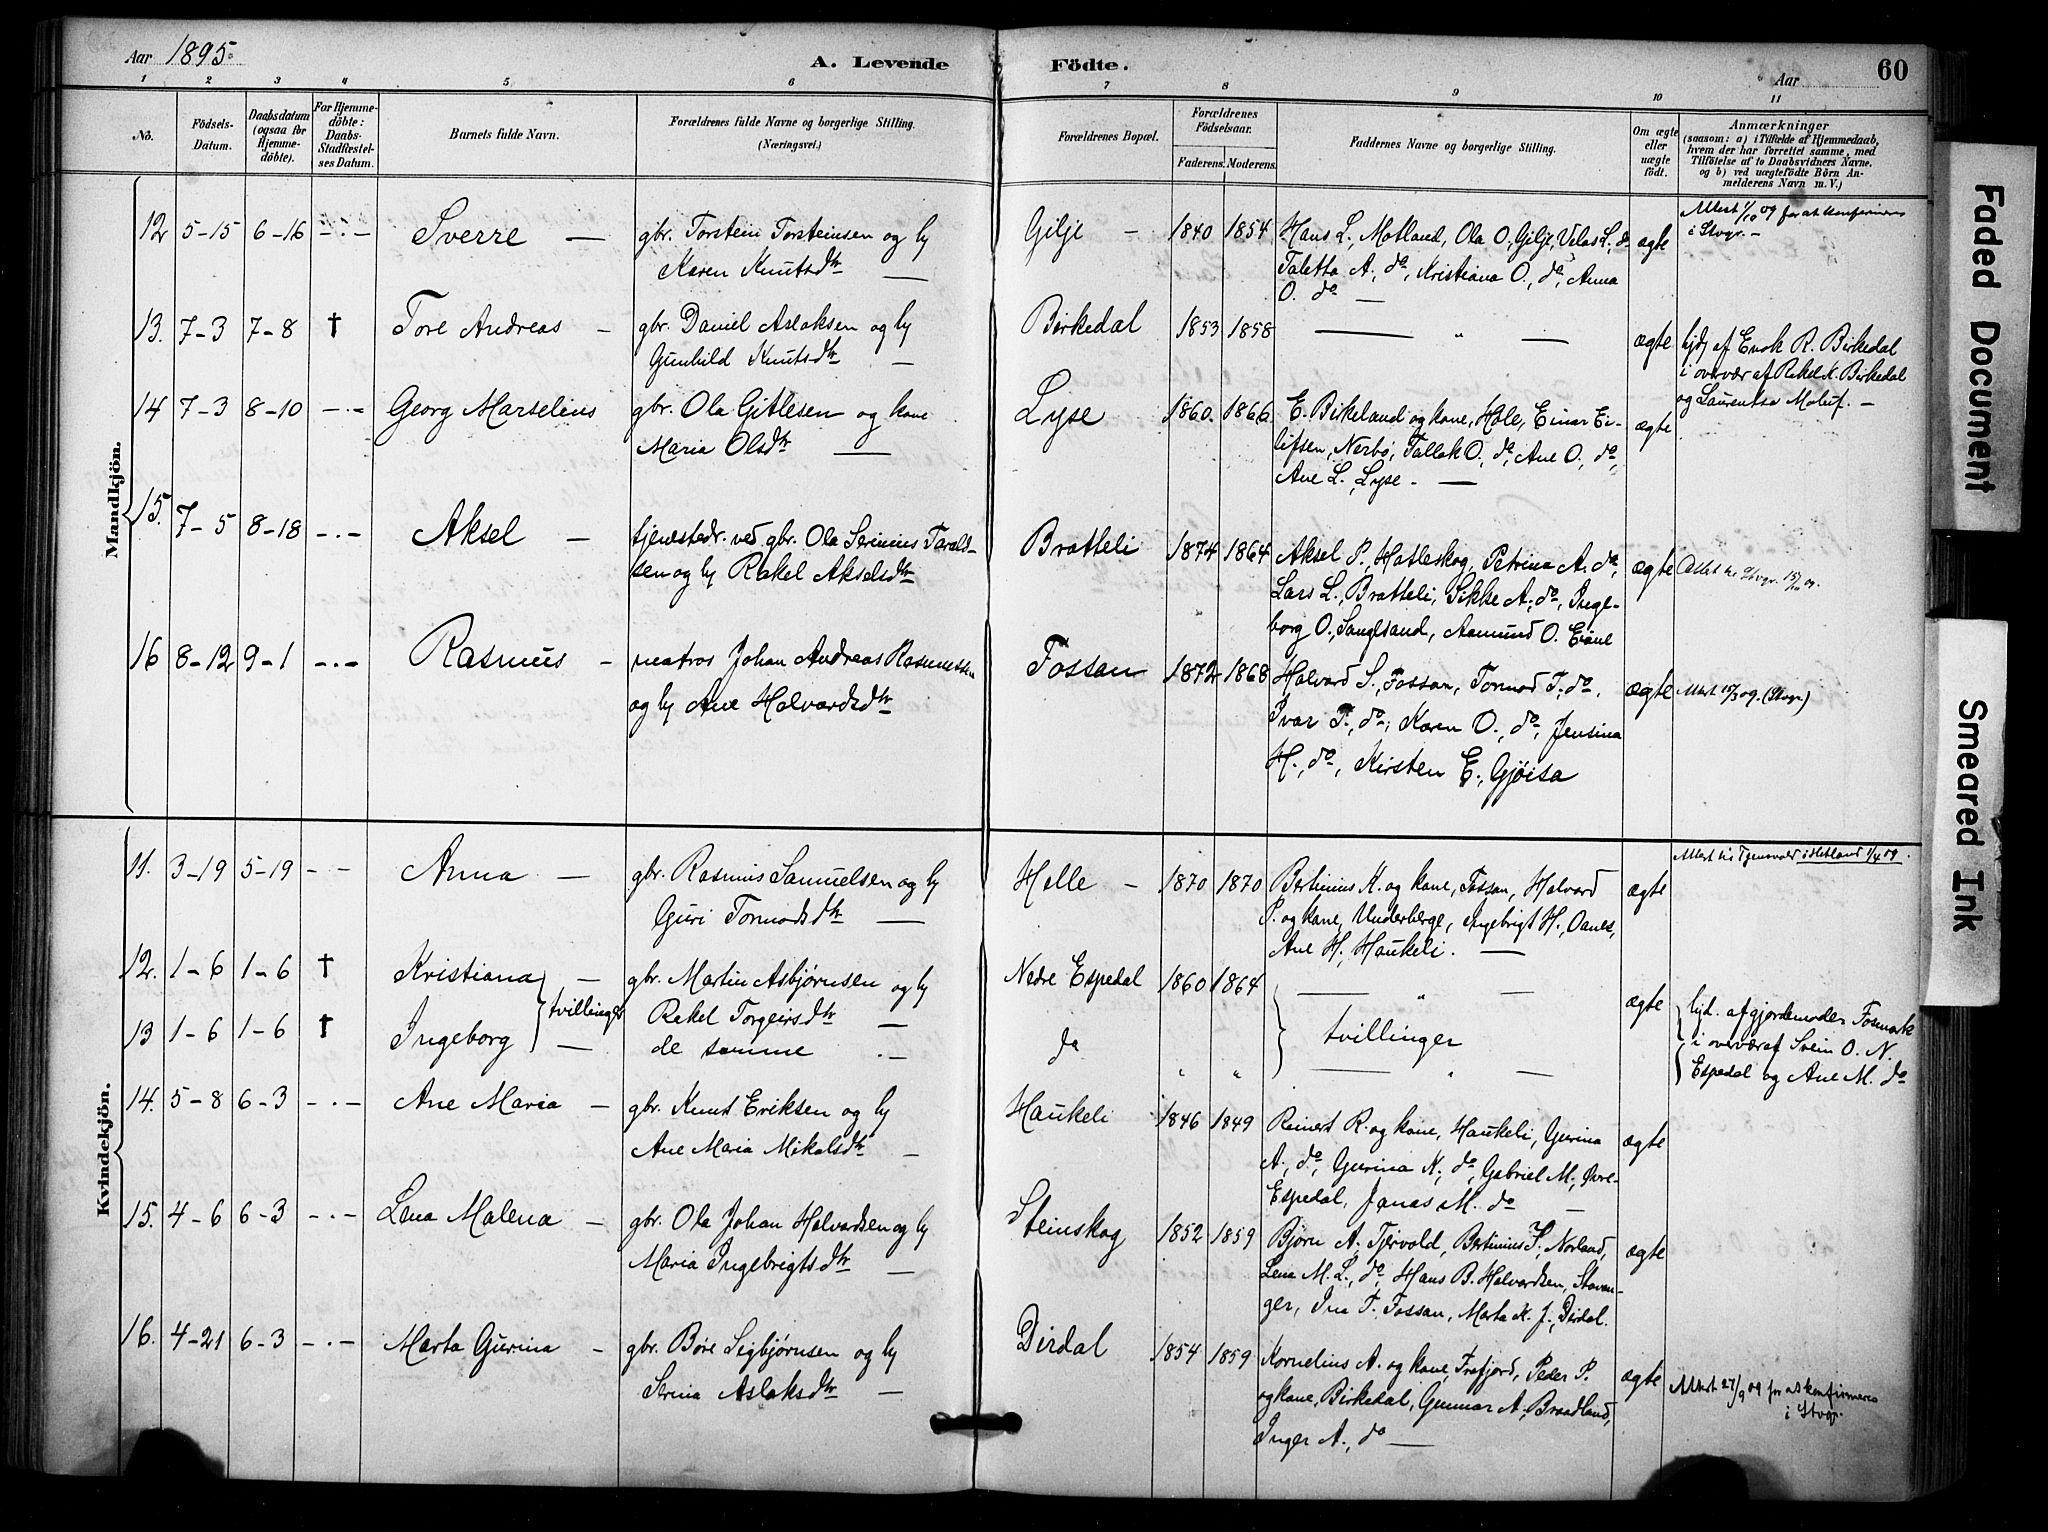 Aar 1895.
A. Levende Födte.
Aar
60
1 2 3 4 5 6 7 8 9 10 11
No.
Födsels-Datum.
Daabsdatum (ogsaa for Hjemmedöbte).
For Hjemmedöbte: Daabs-Stadfæstelses Datum.
Barnets fulde Navn.
Forældrenes fulde Navne og borgerlige Stilling. (Næringsvei.)
Forældrenes Bopæl.
Forældrenes Födselsaar.
Faderens. Moderens.
Faddernes Navne og borgerlige Stilling.
Om ægte eller uægte födt.
Anmærkninger
(saasom: a) i Tilfælde af Hjemmedaab, hvem der har forrettet samme, med Tilföielse af to Daabsvidners Navne, og b) ved uægtefödte Börn Anmelderens Navn m. V.)
Mandkjön.
12 5-15 6-16 -.- Sverre — gbr. Torstein Torsteinsen og hj Gilje - 1840 1854 Hans L., Motland, Ola O., Gilje, L., do ægte Attest 1/10 09 for at konfirmeres
Karen Knutsdtr — Taletta A., do, Kristiana O., do, Anna i Stvgr. -
O. do —
13. 7-3 7-8 † Tore Andreas - gbr. Daniel Aslaksen og hj Birkedal 1853 1858 — " — ægte hjd. af Enok R. Birkedal
Gunhild Knutsdtr — i overvær af Rakel K. Birkedal
og Laurentsa Maluf. -
14 7-3 8-10 -.- Georg Marselius gbr. Ola Gitlesen og kone Lyse 1860. 1866. E. Birkeland og kone, Hole, Einar Ei- ægte
Maria Olsdtr — lifsen, Nerbø, Tallak O., do, Ane O., do,
Ane L., Lyse. —
15. 7-5 8-18 -.- Aksel - tjenestedr. ved. gbr. Ola Serinius Tarald- Bratteli 1874 1864 Aksel P., Hatleskog, Petrina A. do, ægte Attest Stvgr. 15/ 09.
sen og hj Rakel Akselsdtr Lars L., Bratteli, Sikke A., do, Inge-
borg O., Songesand, Aamund O. Eiane
16 8-12 9-1 -.- Rasmus - matros Johan Andreas Rasmussen Fossan 1872 1868 Halvard S., Fossan, Tormod T., do, ægte Attest 09. (Stvgr.)
og hj Ane Halvardsdtr Ivar T., do, Karen O., do, Jensina
H., do, Kirsten E., Gjøisa
Kvindekjön.
11. 3-19 5-19 - - Anna — gbr. Rasmus Samuelsen og hj Helle - 1870 1870 Bertinius K. og kone, Fossan, Halvard ægte Attest i Hetland 1/4 09.
Guri Tormodsdtr — P. og kone, Underberge, Ingebrigt H., Oanes,
Ane H., Haukeli. —
12. 1-6 1-6 † Kristiana — gbr. Martin Asbjørnsen og hj Nedre Espedal 1860 1864 — " — ægte hjd. af gjordemoder Fosmark
tvillinger Rakel Torgeirsdtr — tvillinger i overvær af Svein O. N.
13 1-6 1-6 † Ingeborg — de samme .- do " " — " — Espedal og Ane M. do
14. 5-8 6-3 -.- Ane Maria - gbr. Knut Eriksen og hj Haukeli 1846 1849 Reinert R. og kone, Haukeli, Gurina ægte
Ane Maria Mikalsdtr - A., do, Gurina K., do, Gabriel M., Øvre-
Espedal, Jonas M. do -
15. 4-6 6-3 -.- Lena Malena - gbr. Ola Johan Halvardsen og hj Steinskog 1852 1859 Bjørn A. Tjervold, Bertinius S., Norland, ægte
Maria Ingebrigtsdtr — Lena M. L., do, Hans B. Halvardsen, Stavan-
ger, Ina T. Fossan, Marta K. J., Dirdal.
16. 4-21 6-3 -.- Marta Gurina - gbr. Børe Sigbjørnsen og hj Dirdal 1854 1859 Kornelius A. og kone, Frafjord, Peder P. ægte Attest 27/9 09 for at konfirmeres
Serina Aslaksdtr — og kone, Birkedal, Gunnar A., Braadland, i Stvgr.
Inger A., do —
Faded Document
Smeared Ink